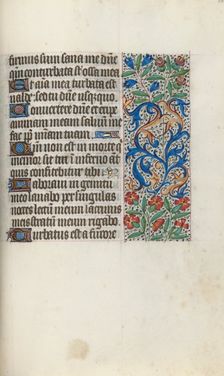 firmus sum sana me dñe
qui conturbata sut ossa mea
Et aīa mea turbata est
valde: sed tu dñe usquequo
Convertere dñe et eripe
animam meam salvū me
fac ꝓpter mīam tuam
Quoniam non est in morte q
memor sit tui: in inferno aūt
quis confitebitur tibi
Laboravi in gemitu
meo lavabo per singulas
noctes lectum meum lacrimis
meis stratū meum rigabo
Turbatus est a furore